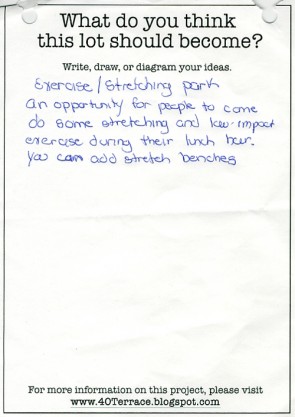 What do you think
this lot should become?
Write, draw, or diagram your ideas.
Exercise/Stretching park
an opportunity for people to come
do some stretching and low-impact
exercise during their lunch hour.
You can add stretch benches
For more information on this project, please visit
www.40Terrace.blogspot.com